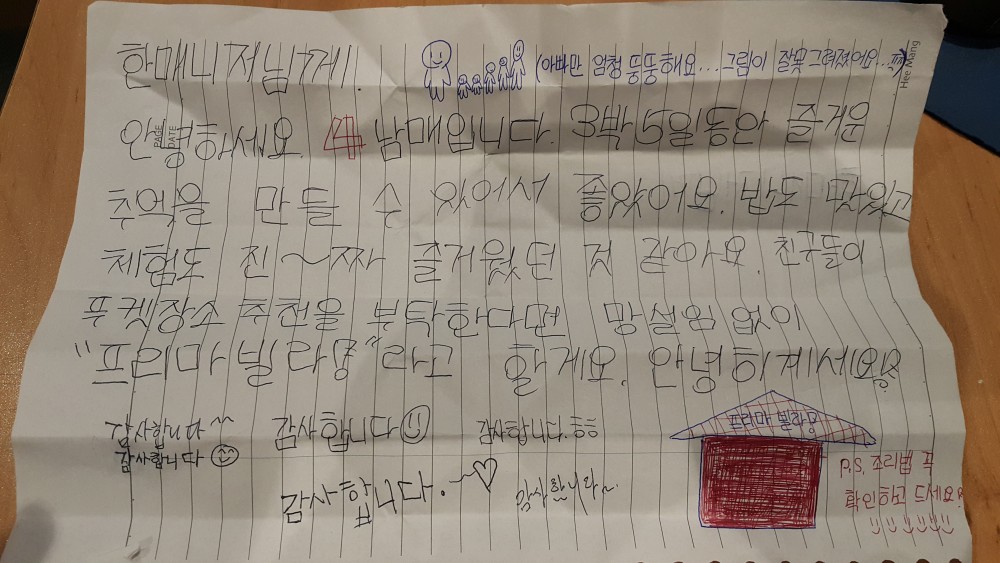 한매니저님께!
(아빠만 엄청 뚱뚱해요... 그림이 잘못 그려졌어요...
Hee Mang
PAGE
DATE
안녕하세요. 4 남매입니다. 3박 5일동안 즐거운
추억을 만들 수 있어서 좋았어요. 밥도 맛있고
체험도 진~짜 즐거웠던 것 같아요. 친구들이
푸켓장소 추천을 부탁한다면 망설임 없이
"프리마 빌라용"라고 할게요. 안녕히계세요
감사합니다 ^^
감사합니다
감사합니다
감사합니다. ㅎㅎㅎ
감사합니다. ~♡
감사합니다~
프리마 빌라용
P.S. 조리법 꼬
확인하고 드세요!